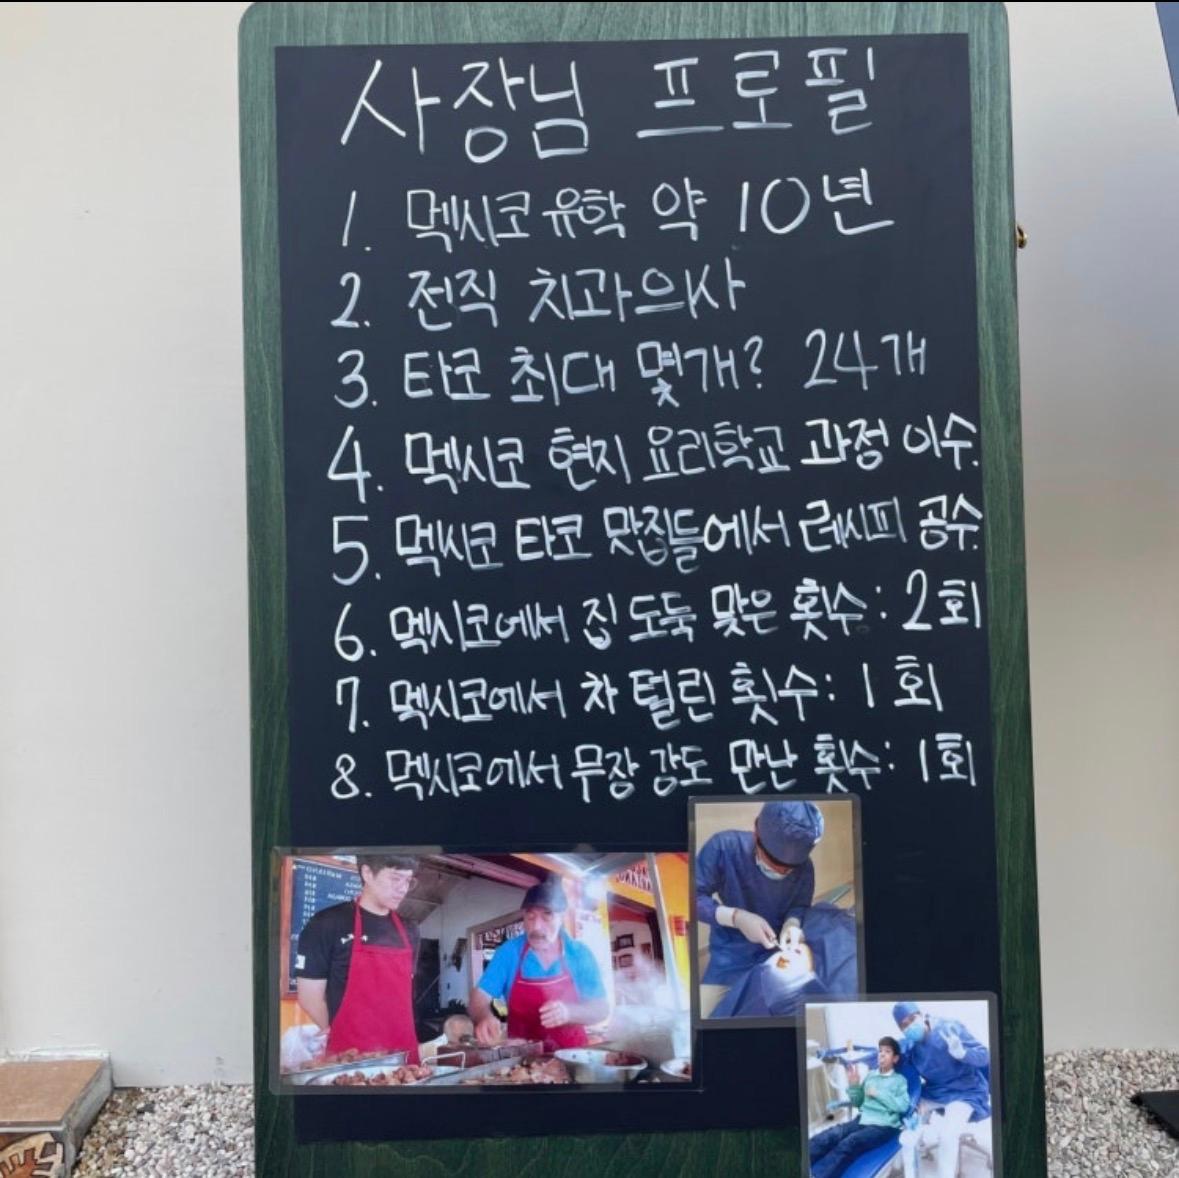 사장님 프로필
1. 멕시코 유학 약 10년
2. 전직 치과의사
3. 타코 최대 몇개? 24개
4. 멕시코 현지 요리학교 과정 이수.
5. 멕시코 타코 맛집들에서 레시피 공수.
6. 멕시코에서 집 도둑 맞은 횟수: 2회
7. 멕시코에서 차 털린 횟수: 1회
8. 멕시코에서 무장 강도 만난 횟수: 1회